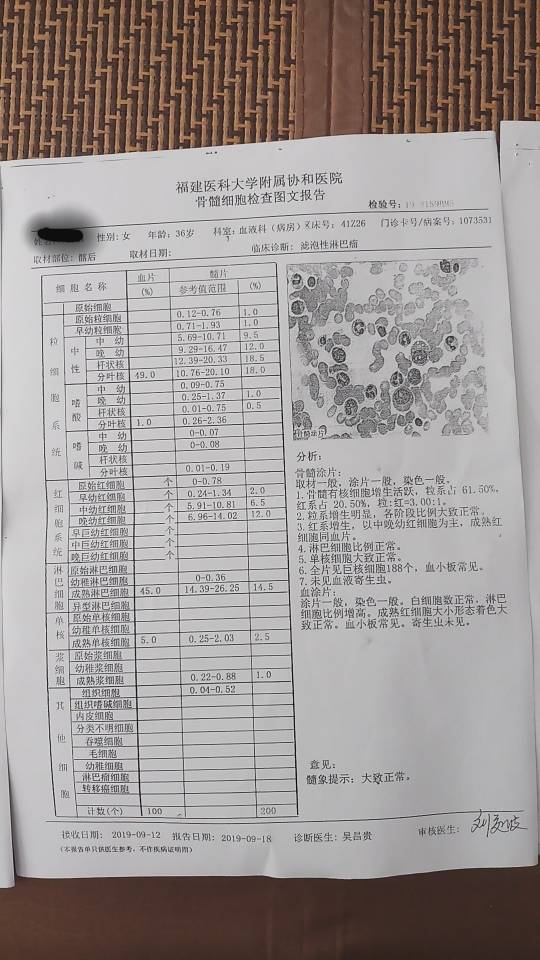 福建医科大学附属协和医院
骨髓细胞检查图文报告
检验号:
性别: 女 年龄: 36岁 科室: 血液科 (病房) 床号: 41Z26 门诊卡号/病案号: 1073531
取材部位: 髂后 取材日期: 临床诊断: 滤泡性淋巴瘤
细胞名称 血片 (%) 髓片 参考值范围 (%)
粒细胞系统
原始细胞
原始粒细胞 0.12-0.76 1.0
早幼粒细胞 0.71-1.93 1.0
中性 中幼 5.69-10.71 9.5
晚幼 9.29-16.47 12.0
杆状核 12.39-20.33 18.5
分叶核 49.0 10.76-20.10 18.0
嗜酸 中幼 0.09-0.75
晚幼 0.25-1.37 1.0
杆状核 0.01-0.75 0.5
分叶核 1.0 0.26-2.36
嗜碱 中幼 0-0.07
晚幼 0-0.08
杆状核
分叶核 0.01-0.19
红细胞系统
原始红细胞 个 0-0.78
早幼红细胞 个 0.24-1.34 2.0
中幼红细胞 个 5.91-10.81 6.5
晚幼红细胞 个 6.96-14.02 12.0
早巨幼红细胞 个
中巨幼红细胞 个
晚巨幼红细胞 个
淋巴细胞
原始淋巴细胞
幼稚淋巴细胞 0-0.36
成熟淋巴细胞 45.0 14.39-26.25 14.5
异型淋巴细胞
单核
原始单核细胞
幼稚单核细胞
成熟单核细胞 5.0 0.25-2.03 2.5
浆细胞
原始浆细胞
幼稚浆细胞
成熟浆细胞 0.22-0.88 1.0
其他细胞
组织细胞 0.04-0.52
组织嗜碱细胞
内皮细胞
分类不明细胞
吞噬细胞
毛细胞
幼稚细胞
淋巴瘤细胞
转移癌细胞
计数(个) 100 200
骨髓涂片
分析:
骨髓涂片:
取材一般, 涂片一般, 染色一般。
1.骨髓有核细胞增生活跃, 粒系占 61.50%,
红系占 20.50%, 粒:红=3.00:1。
2.粒系增生明显, 各阶段比例大致正常。
3.红系增生, 以中晚幼红细胞为主, 成熟红
细胞同血片。
4.淋巴细胞比例正常。
5.单核细胞大致正常。
6.全片见巨核细胞188个, 血小板常见。
7.未见血液寄生虫。
血涂片:
涂片一般, 染色一般。白细胞数正常, 淋巴
细胞比例增高。成熟红细胞大小形态着色大
致正常。血小板常见。寄生虫未见。
意见:
髓象提示: 大致正常。
接收日期: 2019-09-12 报告日期: 2019-09-18 诊断医生: 吴昌贵 审核医生:
(本报告单只供医生参考, 不作疾病证明用)